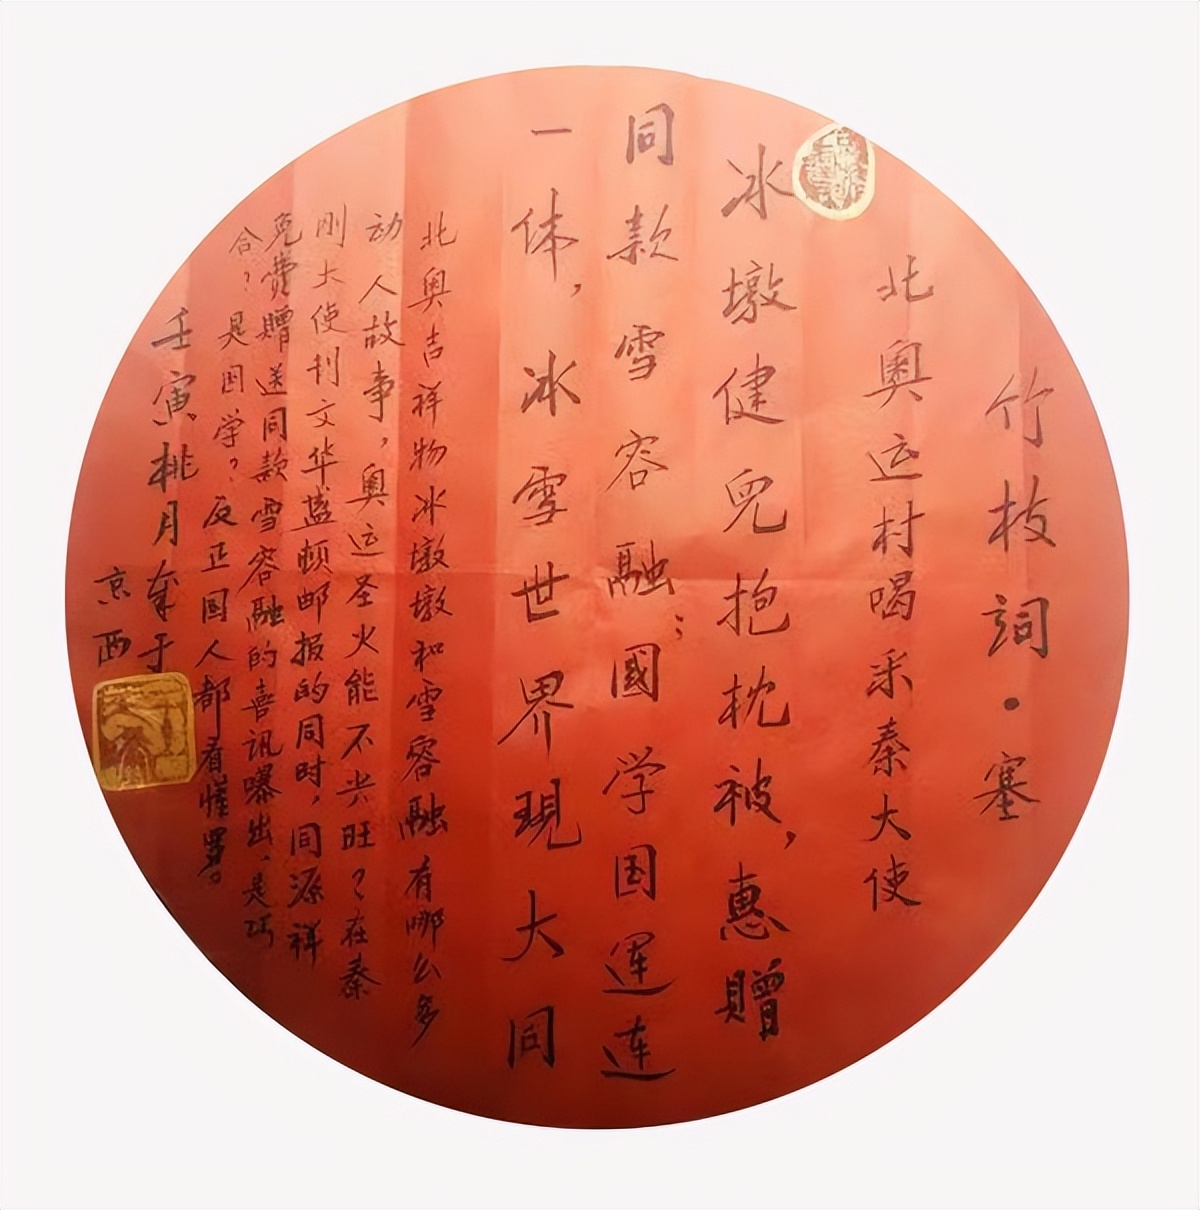 竹枝詞·塞
北奥运村喝采秦大使
冰墩健兒抱枕被，惠贈
同款雪容融；國学国運连
一体，冰雪世界現大同
北奥吉祥物冰墩墩和雪容融有哪么多
动人故事，奥运圣火能不兴旺？在秦
刚大使刊文华盛顿邮报的同时，同源祥
免费贈送同款雪容融的喜讯曝出，是巧
合？是国学？反正国人都看懂罗。
壬寅桃月年于
京西